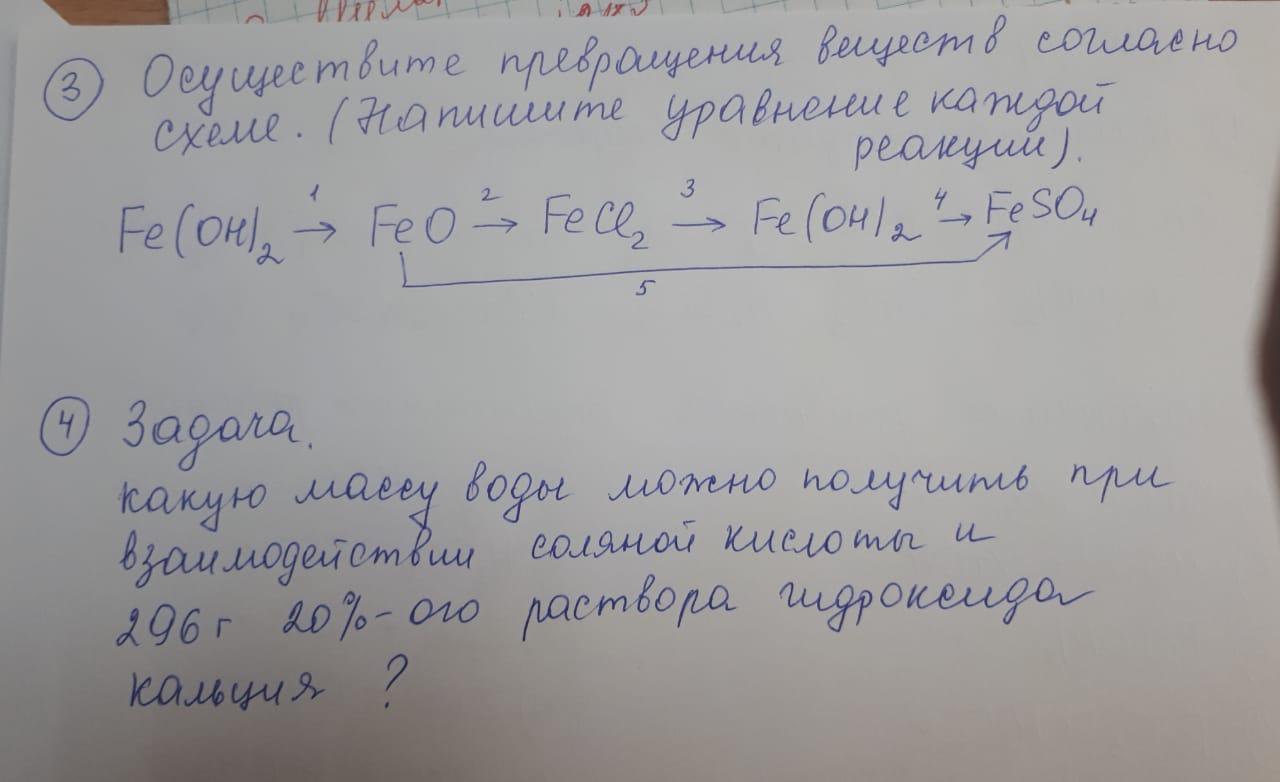 ③ Осуществите превращения веществ согласно
схеме. (Напишите уравнение каждой
реакции).
1 2 3 4
Fe(OH)₂ → FeO → FeCl₂ → Fe(OH)₂ → FeSO₄
5
④ Задача.
какую массу воды можно получить при
взаимодействии соляной кислоты и
296 г 20%-ого раствора гидроксида
кальция ?